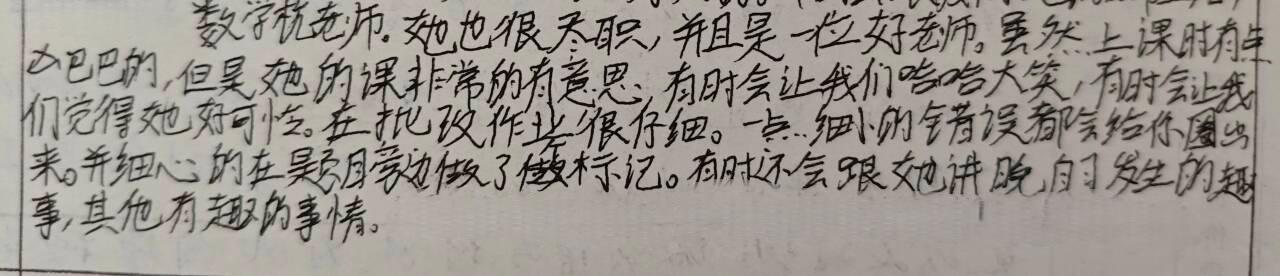 数学杭老师。她也很尽职，并且是一位好老师。虽然上课时有点
凶巴巴的，但是她的课非常的有意思，有时会让我们哈哈大笑，有时会让我
们觉得她好可怜。在批改作业很仔细。一点细小的错误都会给你圈出
来。并细心的在题目旁边做了做标记。有时还会跟她讲晚自习发生的趣
事，其他有趣的事情。